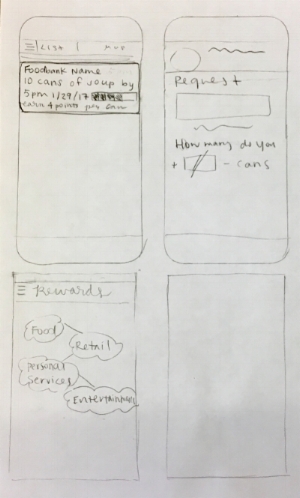 LIST | MAP
Foodbank Name
10 cans of soup by
5pm 1/27/17
earn 4 points per can
Request
How many do you
+ - cans
Rewards
Food
Retail
Personal
Services
Entertainment